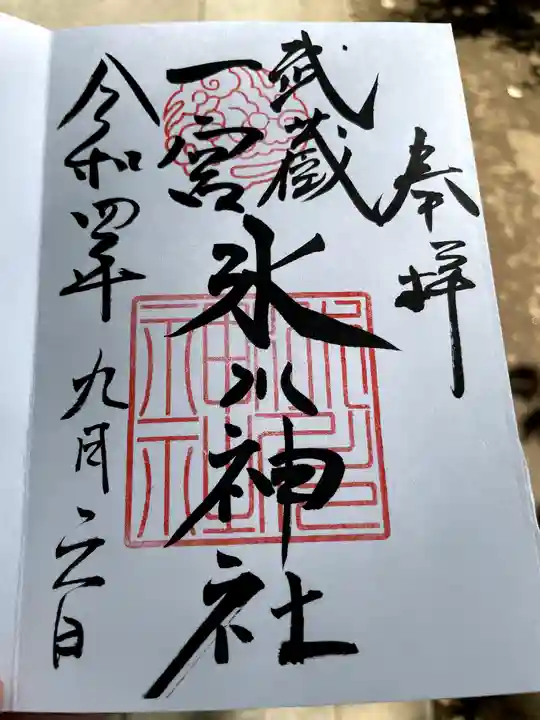 奉拝
武蔵
一宮
氷川神社
令和四年九月二六日
氷川
神社